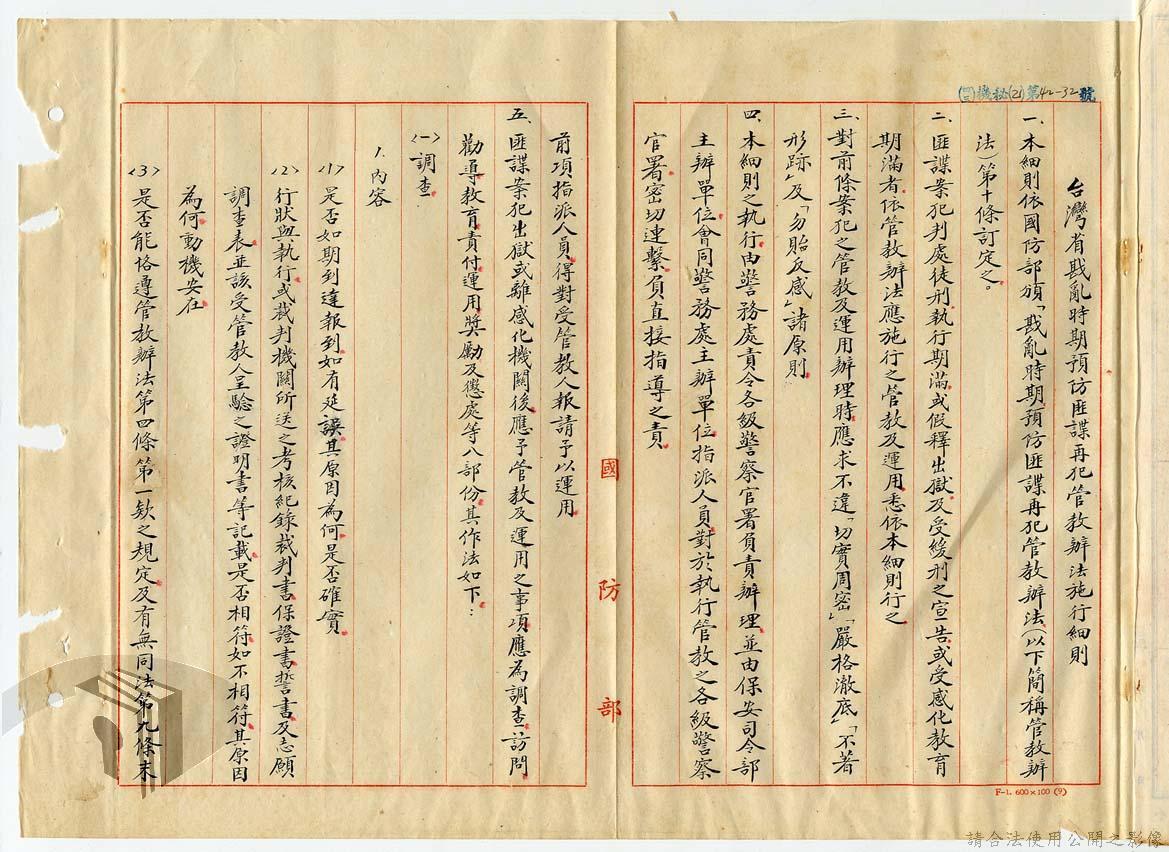 (四)機秘(21)第42-32號
台灣省戡亂時期預防匪諜再犯管教辦法施行細則
一、本細則依國防部頒「戡亂時期預防匪諜再犯管教辦法(以下簡稱管教辦
法)第十條訂定之。
二、匪諜案犯判處徒刑執行期滿或假釋出獄及受緩刑之宣告或受感化教育
期滿者依管教辦法應施行之管教及運用悉依本細則行之
三、對前條案犯之管教及運用辦理時應求不違「切實周密」「嚴格澈底」「不著
形跡」及「勿貽反感」諸原則
四、本細則之執行由警務處責令各級警察官署負責辦理並由保安司令部
主辦單位會同警務處主辦單位指派人員對於執行管教之各級警察
官署密切連繫負直接指導之責
國防部
前項指派人員得對受管教人報請予以運用
五、匪諜案犯出獄或離感化機關後應予管教及運用之事項應為調查訪問
勸導教育責付運用獎勵及懲處等八部份其作法如下：
(一)調查
1.內容
(1)是否如期到達報到如有延誤其原因為何是否確實
(2)行狀與執行或裁判機關所送之考核紀錄裁判書保證書誓書及志願
調查表並該受管教人呈驗之證明書等記載是否相符如不相符其原因
為何動機安在
(3)是否能恪遵管教辦法第四條第一欵之規定及有無同法第九條末
F-1. 600×100 (9)
請合法使用公開之影像